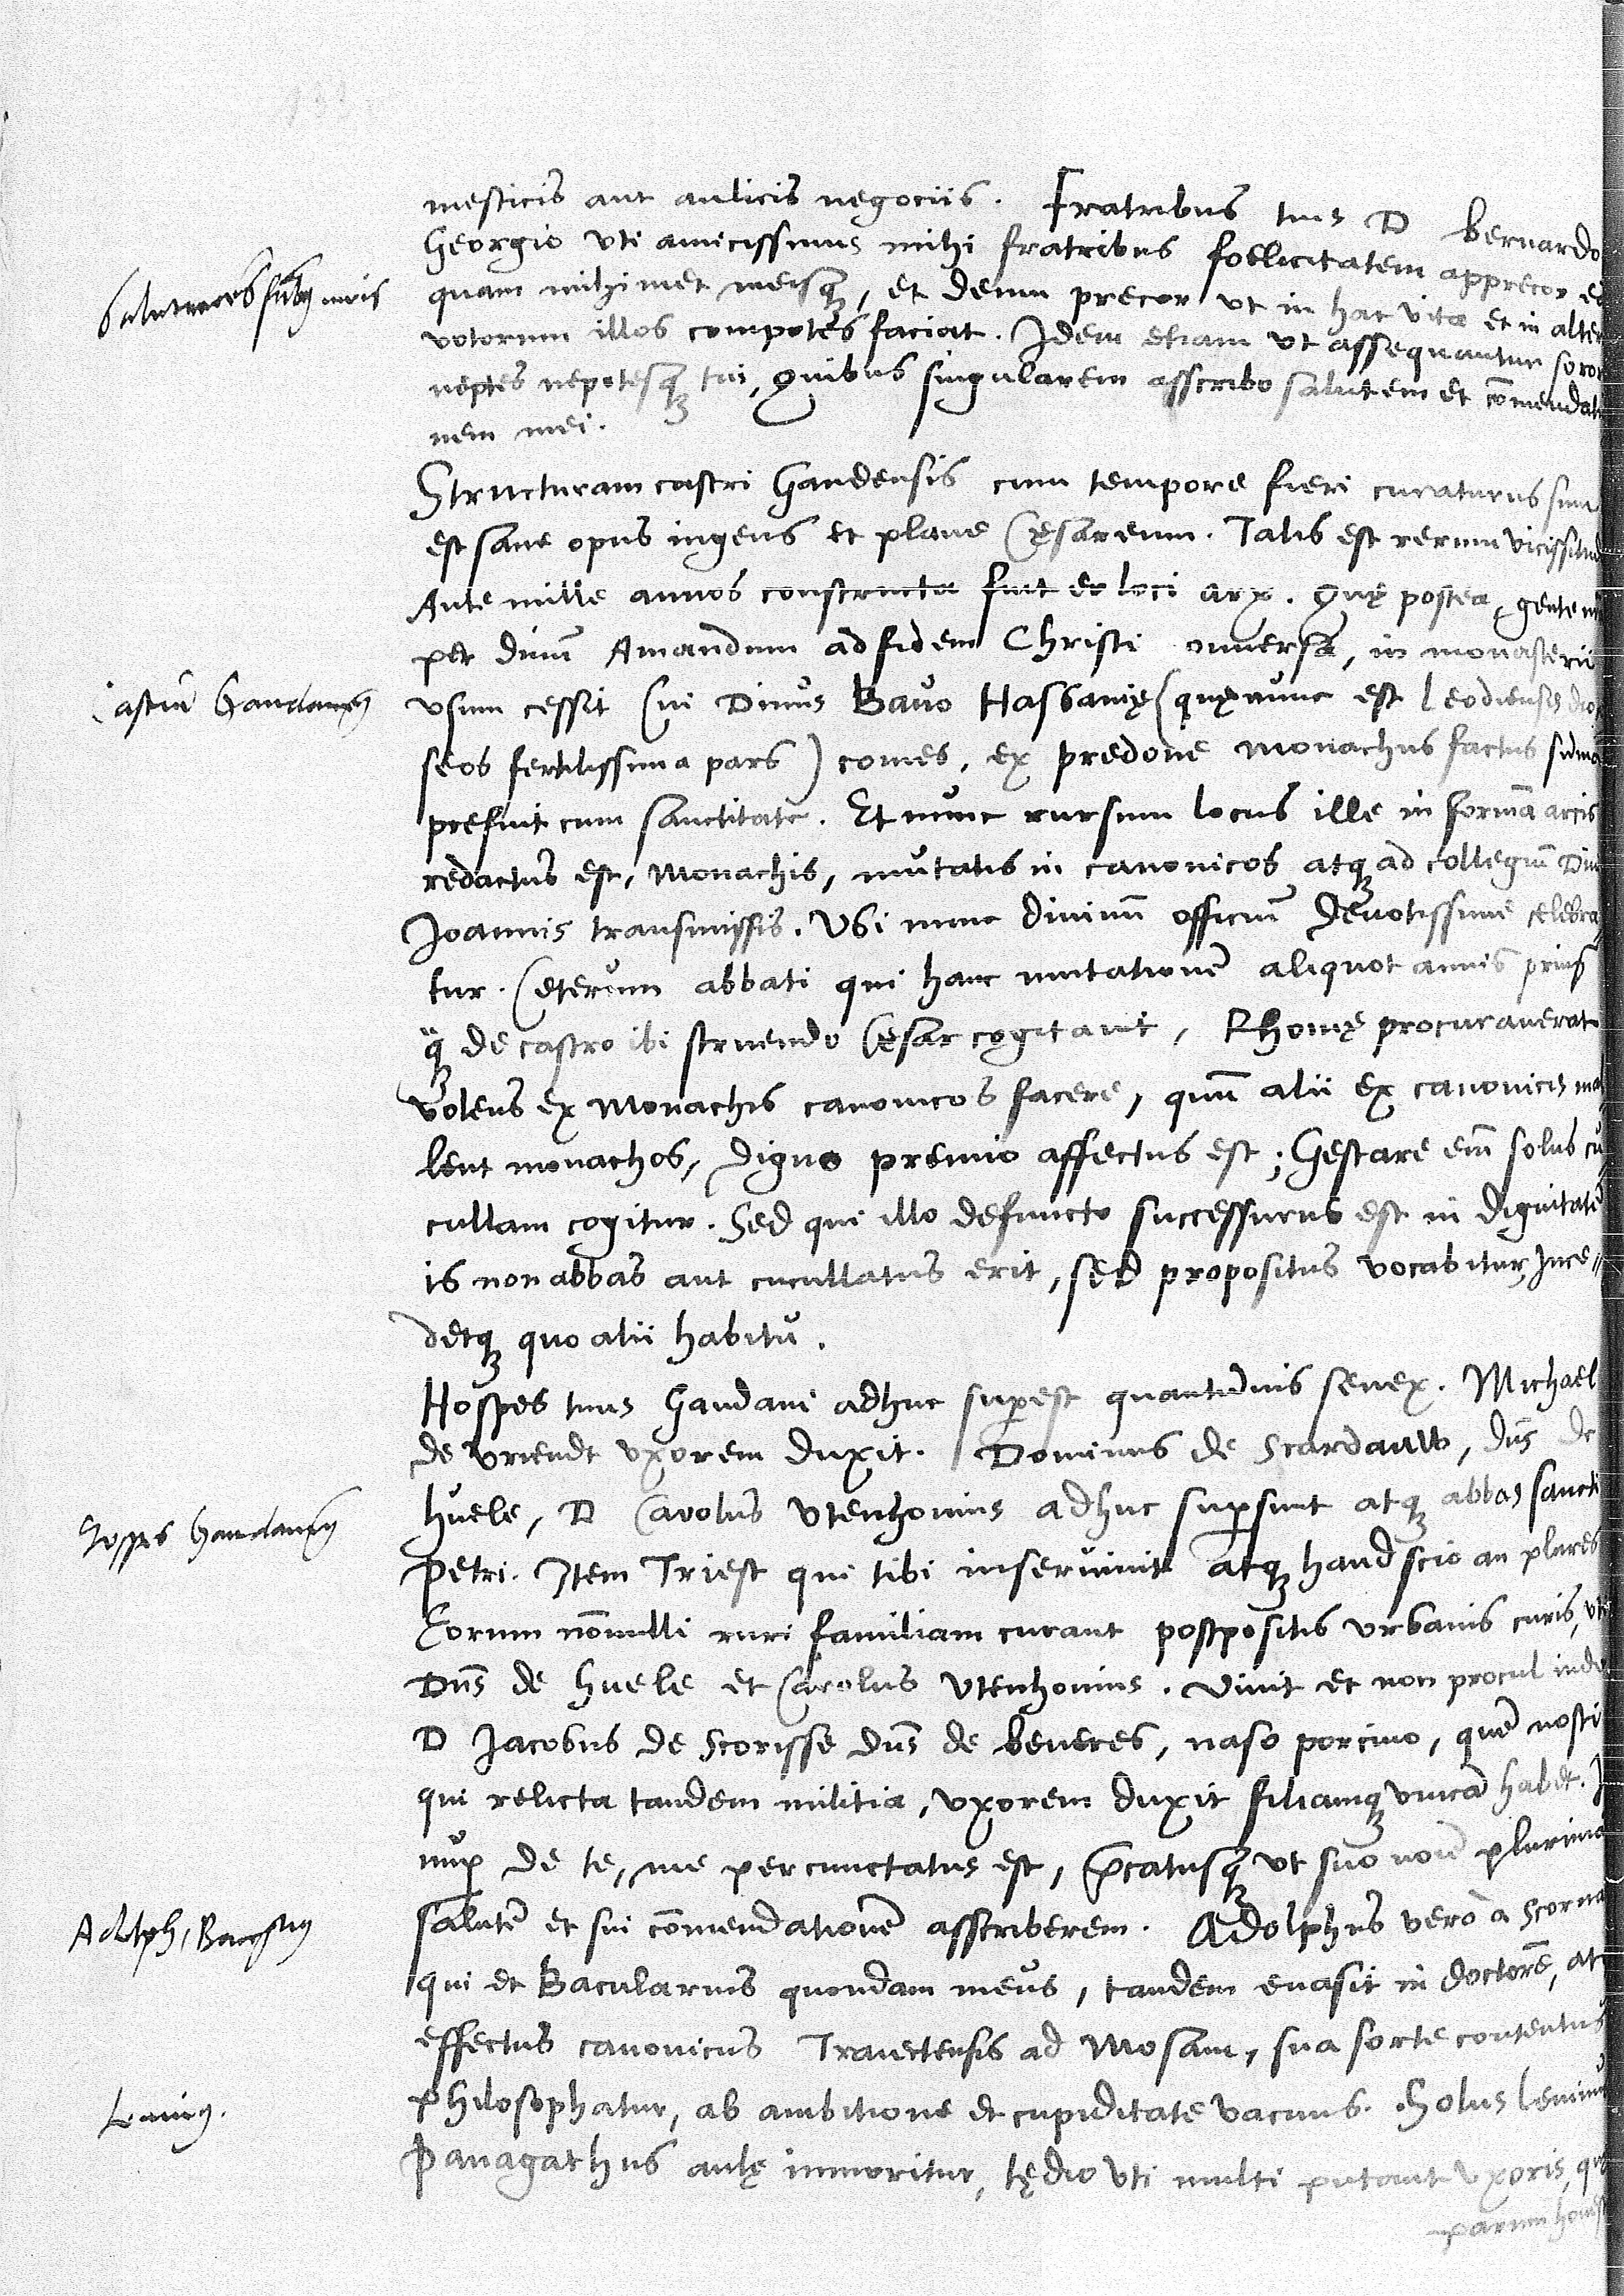 mesticis aut aulicis negociis. Fratribus tuis D Bernardo
Georgio uti amicissimis mihi fratribus foelicitatem apprecor
quam mihimet meisque, et deum precor ut in hac vita et in alter
votorum illos compotes faciat. Idem etiam ut assequantur soror
neptes nepotesque tui, quibus singularem asscribo salutem et co̅mendati
nem mei.
Structuram castri Gandensis cum tempore fieri curaturus sum
est sane opus ingens et plane Cęsareum. Talis est rerum vicissitud
Ante mille annos constructa fuit eo loci arx. Quę postea, gente
per diuu̅ Amandum ad fidem Christi conuersa, in monasterii
Castru̅ Gandauen̅
usum cessit Cui Diuus Bauo Hasbanię (quę nunc est Leodiensis dio
seos fertilissima pars) comes, ex predone monachus factus su̅ma
prefuit cum sanctitate. Et nunc rursum locus ille in forma̅ arcis
redactus est, Monachis, mutatis in canonicos atque ad collegiu̅ Diui
Joannis transmissis. Ubi nunc diuinu̅ officiu̅ deuotissime celebra
tur. Ceterum abbati qui hanc mutatione̅ aliquot annis prius
q̈ de castro ibi struendo Cęsar cogitauit, Rhomę procurauerat
volens ex Monachis canonicos facere, quu̅ alii ex canonicis ma
lent monachos, digno premio affectus est; Gestare em̅ solus cu
cullam cogitur. Sed qui illo defuncto successurus est in dignitate̅
is non abbas aut cucullatus erit, sed propositus vocabitur, Ince
detque quo alii habitu.
Hospes tuus Gandaui adhuc sup̅est quantumuis senex. Michael
de vriendt uxorem duxit. Dominus de Scardauw, dn̅s de
Hospes Gandauen̅
huele, D Carolus Utenhouius adhuc sup̅sunt atque abbas sancti
Petri. Item Triest qui tibi inseruiuit atque haud scio an plures
Eorum no̅nulli ruri familiam curant postpositis urbanis curis, uti
Dn̅s de huele et Carolus Utenhouius. Viuit et non procul inde
D Jacobus de Scorisse dn̅s de beueres, naso porcino, que̅ nosti
qui relicta tandem militia, uxorem duxit filiamque unica̅ habet.
nup̅ de te, me percunctatus est, p̅catusque ut suo no̅ie plurima
Adolph, Bac
salute̅ et sui co̅mendatione̅ asscriberem. Adolphus vero à Scorna
qui et Bacularius quondam meus, tandem euasit in doctore̅, at
effectus canonicus Traiectensis ad Mosam, sua sorte contentus
Leuinus.
Philosophatur, ab ambitione et cupiditate vacuus. Solus Leuinus
Panagathus aulę immoritur, tędio uti multi putant uxoris, que
parum